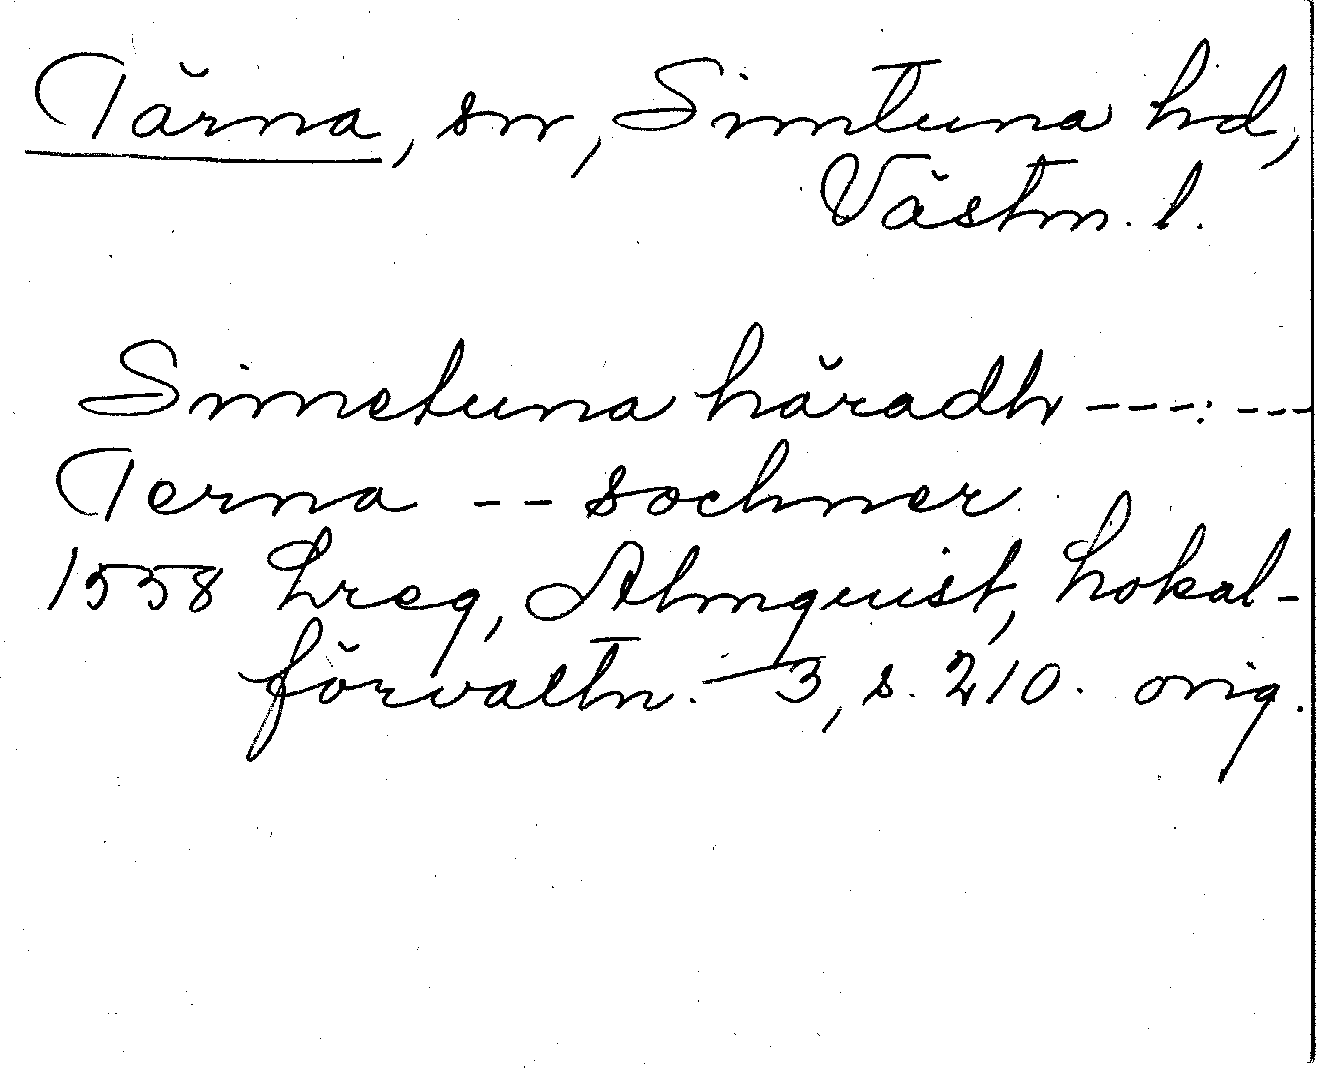 Tärna, sn, Simtuna hd,
Västm. l.
Simetuna häradh ---:---
Terna -- sochner
1558 Lreg, Almquist, Lokal-
förvaltn. 3, s. 210. orig.